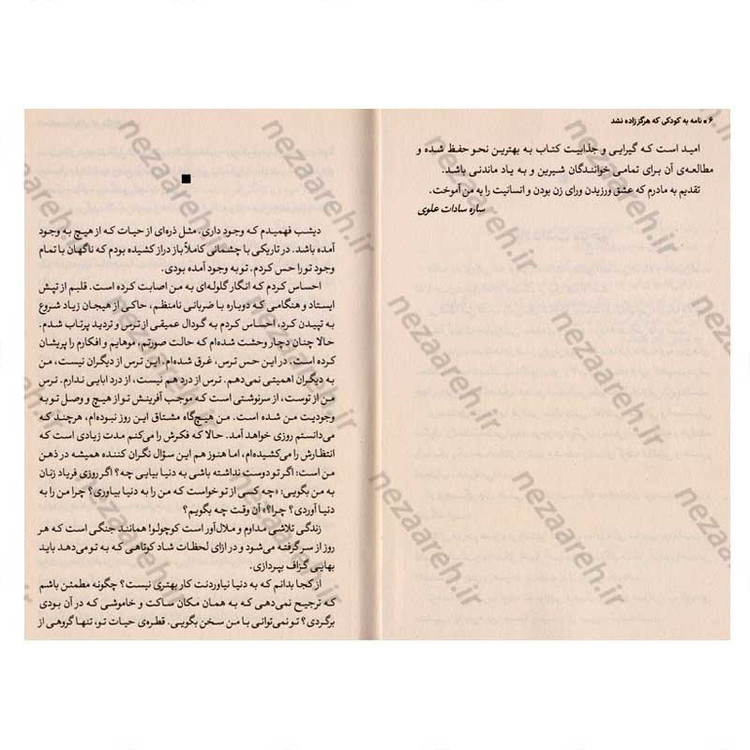 ۶ • نامه به کودکی که هرگز زاده نشد
امید است که گیرایی و جذابیت کتاب به بهترین نحو حفظ شده و
مطالعه‌ی آن برای تمامی خوانندگان شیرین و به یاد ماندنی باشد.
تقدیم به مادرم که عشق ورزیدن ورای زن بودن و انسانیت را به من آموخت.
ساره سادات علوی
■
دیشب فهمیدم که وجود داری. مثل ذره‌ای از حیات که از هیچ به وجود
آمده باشد. در تاریکی با چشمانی کاملاً باز دراز کشیده بودم که ناگهان با تمام
وجود تو را حس کردم. تو به وجود آمده بودی.
احساس کردم که انگار گلوله‌ای به من اصابت کرده است. قلبم از تپش
ایستاد و هنگامی که دوباره با ضربانی نامنظم، حاکی از هیجان زیاد شروع
به تپیدن کرد، احساس کردم به گودال عمیقی از ترس و تردید پرتاب شدم.
حالا چنان دچار وحشت شده‌ام که حالت صورتم، موهایم و افکارم را پریشان
کرده است. در این حس ترس، غرق شده‌ام. این ترس از دیگران نیست، من
به دیگران اهمیتی نمی‌دهم. ترس از درد هم نیست، از درد ابایی ندارم. ترس
من از توست، از سرنوشتی است که موجب آفرینش تو از هیچ و وصل تو به
وجودیت من شده است. من هیچ‌گاه مشتاق این روز نبوده‌ام، هرچند که
می‌دانستم روزی خواهد آمد. حالا که فکرش را می‌کنم مدت زیادی است که
انتظارش را می‌کشیده‌ام، اما هنوز هم این سؤال نگران کننده همیشه در ذهن
من است: اگر تو دوست نداشته باشی به دنیا بیایی چه؟ اگر روزی فریاد زنان
به من بگویی: «چه کسی از تو خواست که من را به دنیا بیاوری؟ چرا من را به
دنیا آوردی؟ چرا؟» آن وقت چه بگویم؟
زندگی تلاشی مداوم و ملال‌آور است کوچولو! همانند جنگی است که هر
روز از سر گرفته می‌شود و در ازای لحظات شاد کوتاهی که به تو می‌دهد باید
بهایی گزاف بپردازی.
از کجا بدانم که به دنیا نیاوردنت کار بهتری نیست؟ چگونه مطمئن باشم
که ترجیح نمی‌دهی که به همان مکان ساکت و خاموشی که در آن بودی
برگردی؟ تو نمی‌توانی با من سخن بگویی. قطره‌ی حیات تو، تنها گروهی از
nezaareh.ir